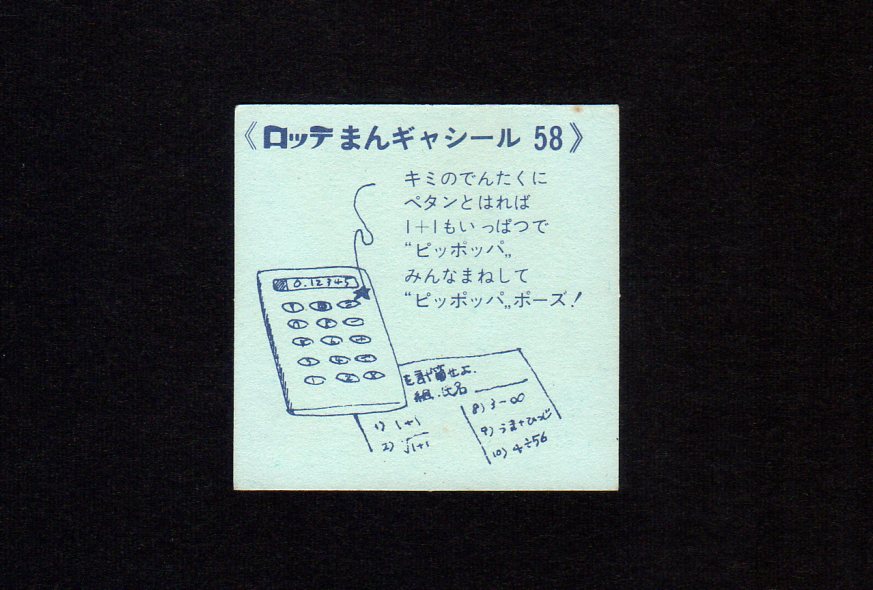 《ロッテ まんギャシール 58》
キミのでんたくに
ペタンとはれば
1+1もいっぱつで
“ピッポッパ„
みんなまねして
“ピッポッパ„ポーズ!
0.12345
を計算せよ.
組.氏名
1) 1+1
2) √1+1
8) 3-∞
9) うま+ひつじ
10) 4÷56